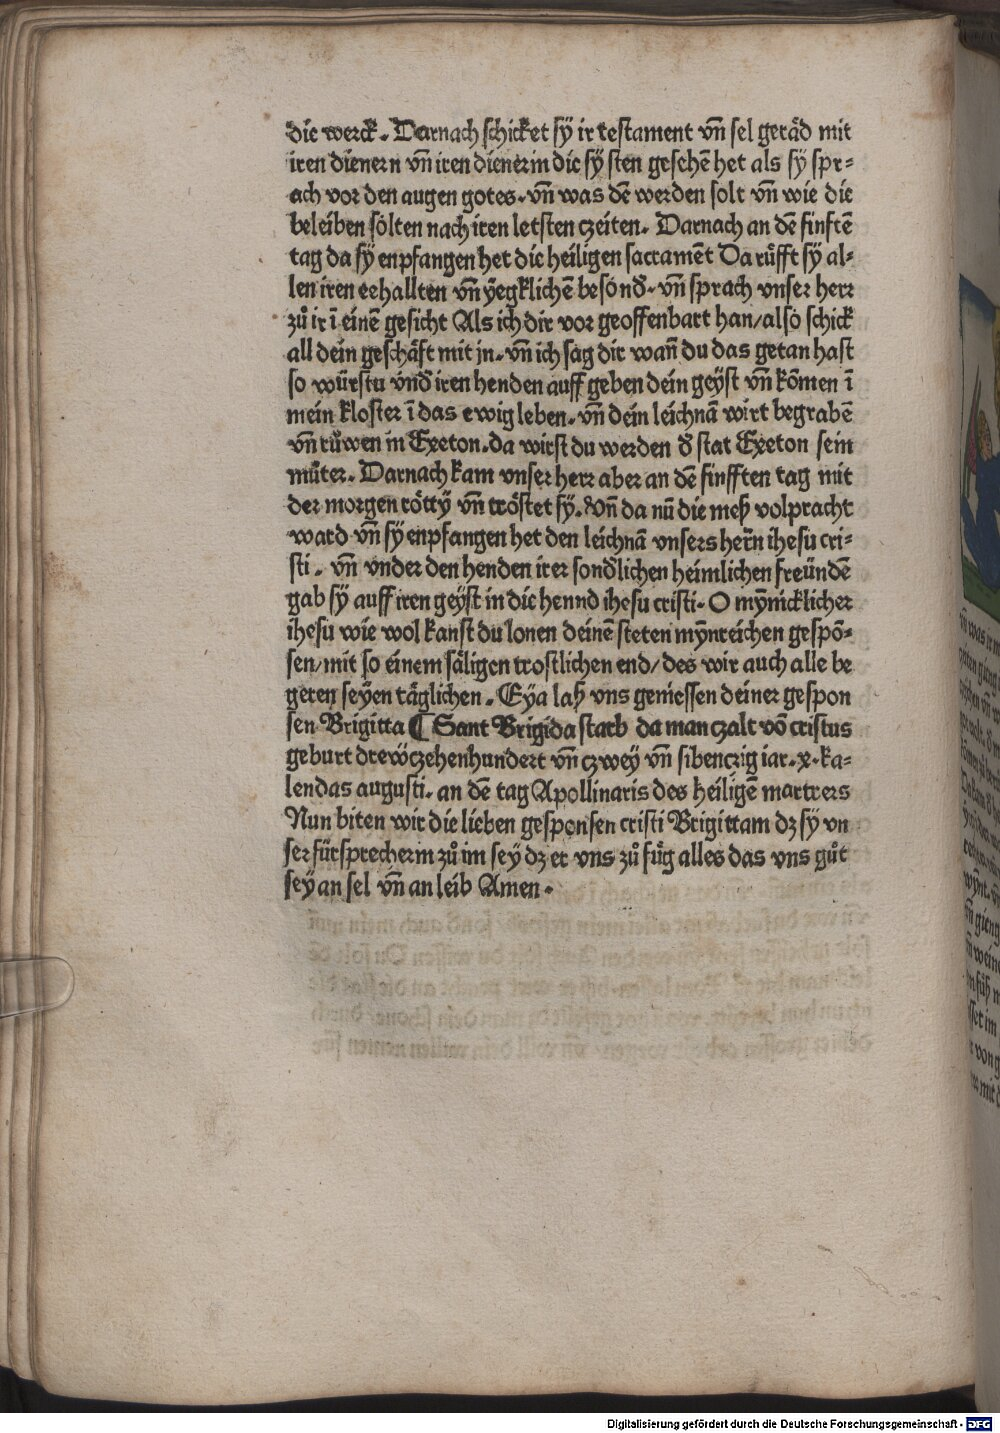 die werck. Darnach schicket sÿ ir testament vn̄ sel geräd mit
iren dienern vn̄ iren dienerin die sÿ sten geschē het als sÿ spr⸗
ach vor den augen gotes. vn̄ was dē werden solt vn̄ wie die
beleiben sölten nach iren letsten czeiten. Darnach an dē finftē
tag da sÿ enpfangen het die heiligen sacramēt Da rüfft sÿ al⸗
len iren eehallten vn̄ ÿegklichē besond̕. vn̄ sprach vnser herr
zů ir ī einē gesicht Als ich dir vor geoffenbart han/also schick
all dein geschäft mit jn. vn̄ ich sag dir wan̄ du das getan hast
so würstu vnd̕ iren henden auff geben dein geÿst vn̄ kōmen ī
mein kloster ī das ewig leben. vn̄ dein leichnā wirt begrabē
vn̄ růwen in Exeton. da wirst du werden d̕ stat Exeton sein
můter. Darnach kam vnser herr aber an dē finfften tag mit
der morgen röttÿ vn̄ tröstet sÿ. Vn̄ da nū die meß volpracht
ward vn̄ sÿ enpfangen het den leichnā vnsers herr̄n ihesu cri⸗
sti. vn̄ vnder den henden irer sond̕lichen heimlichen freündē
gab sÿ auff iren geÿst in die hennd ihesu cristi. O mȳnicklicher
ihesu wie wol kanst du lonen deinē steten mȳnreichen gespō⸗
sen/mit so einem säligen trostlichen end/des wir auch alle be
geren seÿen täglichen. Eya laß vns geniessen deiner gespon
sen Brigitta ¶ Sant Brigida starb da man czalt vō cristus
geburt drewczehenhundert vn̄ czweÿ vn̄ sibenczig iar. x. ka⸗
lendas augusti. an dē tag Apollinaris des heiligē martrers
Nun biten wir die lieben gesponsen cristi Brigittam dz sÿ vn
ser fürsprecherin zů im seÿ dz er vns zů füg alles das vns gůt
seÿ an sel vn̄ an leib Amen.
Digitalisierung gefördert durch die Deutsche Forschungsgemeinschaft - DFG